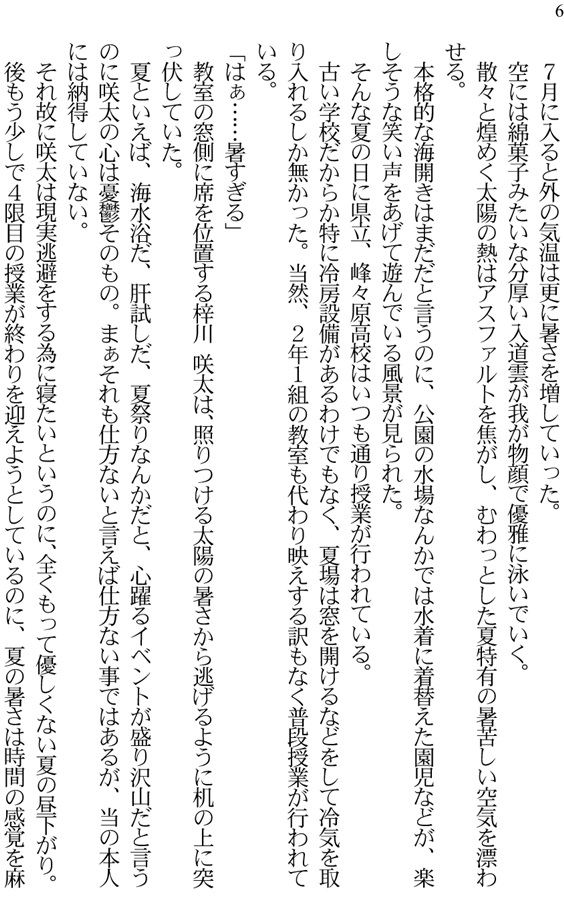 6
７月に入ると外の気温は更に暑さを増していった。
空には綿菓子みたいな分厚い入道雲が我が物顔で優雅に泳いでいく。
散々と煌めく太陽の熱はアスファルトを焦がし、むわっとした夏特有の暑苦しい空気を漂わ
せる。
本格的な海開きはまだだと言うのに、公園の水場なんかでは水着に着替えた園児などが、楽
しそうな笑い声をあげて遊んでいる風景が見られた。
そんな夏の日に県立、峰々原高校はいつも通り授業が行われている。
古い学校だからか特に冷房設備があるわけでもなく、夏場は窓を開けるなどをして冷気を取
り入れるしか無かった。当然、２年１組の教室も代わり映えする訳もなく普段授業が行われて
いる。
「はぁ……暑すぎる」
教室の窓側に席を位置する梓川 咲太は、照りつける太陽の暑さから逃げるように机の上に突
っ伏していた。
夏といえば、海水浴だ、肝試しだ、夏祭りなんかだと、心躍るイベントが盛り沢山だと言う
のに咲太の心は憂鬱そのもの。まぁそれも仕方ないと言えば仕方ない事ではあるが、当の本人
には納得していない。
それ故に咲太は現実逃避をする為に寝たいというのに、全くもって優しくない夏の昼下がり。
後もう少しで４限目の授業が終わりを迎えようとしているのに、夏の暑さは時間の感覚を麻